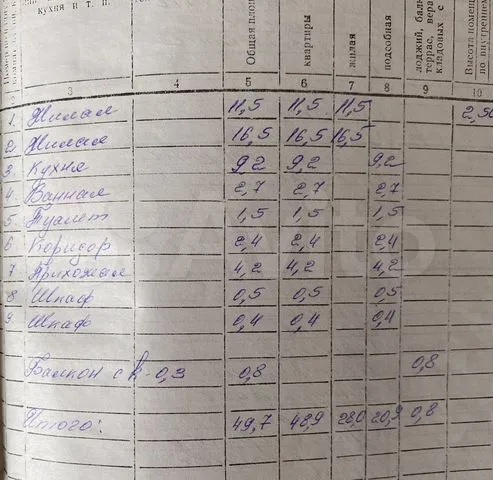 кухня и т. п.
Общая площ
квартиры
жилая
подсобная
лоджий, балк
террас, вера
кладовых с
Высота помещ
по внутреннем
3 4 5 6 7 8 9 10
1. Жилая 11,5 11,5 11,5 2,50
2. Жилая 16,5 16,5 16,5
3 Кухня 9,2 9,2 9,2
4. Ванная 2,7 2,7 2,7
5. Туалет 1,5 1,5 1,5
6 Коридор 2,4 2,4 2,4
7 Прихожая 4,2 4,2 4,2
8 Шкаф 0,5 0,5 0,5
9 Шкаф 0,4 0,4 0,4
Балкон с k-0,3 0,8 0,8
Итого: 49,7 48,9 28,0 20,9 0,8